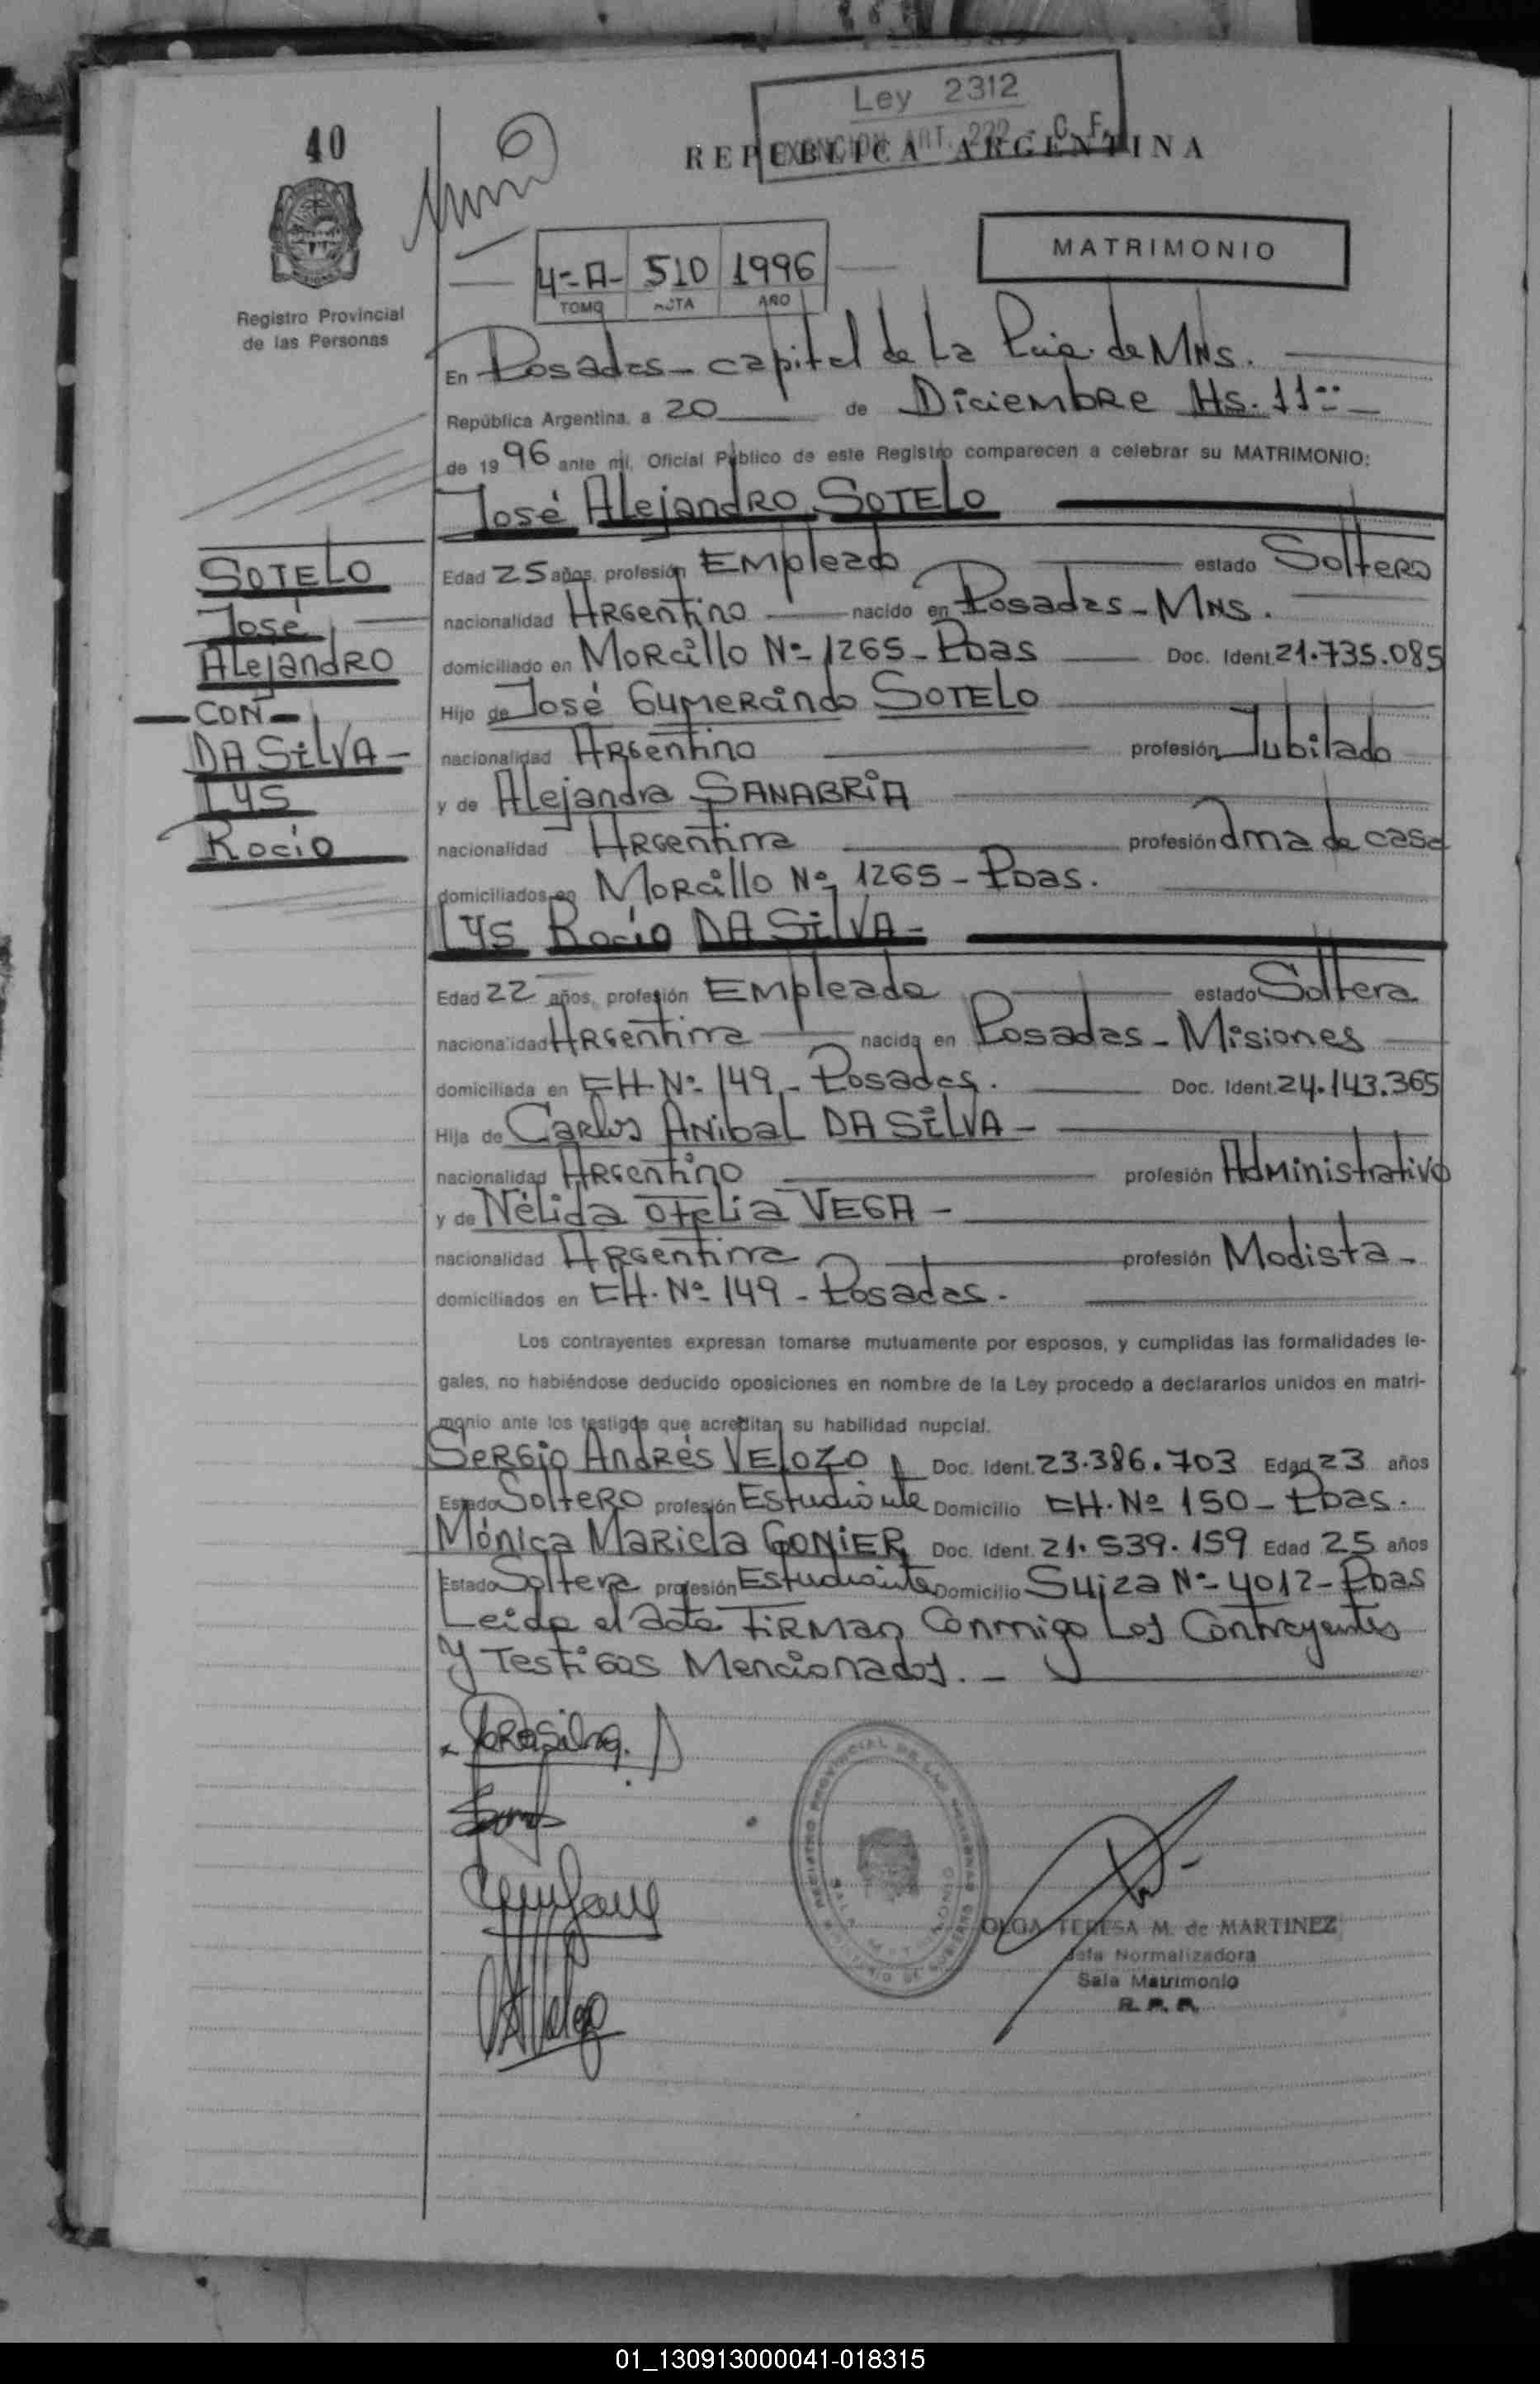 Ley 2312
EXENCION ART. 222 - C. F.
40
REPUBLICA ARGENTINA
MATRIMONIO
4º-A- 510 1996
TOMO ACTA AÑO
Registro Provincial
de las Personas
En Posadas - capital de La Pcia. de MNS.
República Argentina, a 20 de Diciembre Hs. 11
de 1996 ante mi, Oficial Público de este Registro comparecen a celebrar su MATRIMONIO:
José Alejandro SOTELO
SOTELO
José
Alejandro
- CON -
DA SILVA -
LYS
Rocío
Edad 25 años, profesión Empleado estado Soltero
nacionalidad Argentino nacido en Posadas - MNS.
domiciliado en Morcillo Nº 1265 - Pdas Doc. Ident. 21.735.085
Hijo de José Gumercindo SOTELO
nacionalidad Argentino profesión Jubilado
y de Alejandra SANABRIA
nacionalidad Argentina profesión Ama de casa
domiciliados en Morcillo Nº 1265 - Pdas.
LYS Rocío DA SILVA -
Edad 22 años, profesión Empleada estado Soltera
nacionalidad Argentina nacida en Posadas - Misiones
domiciliada en CH. Nº 149 - Posadas. Doc. Ident. 24.143.365
Hija de Carlos Anibal DA SILVA -
nacionalidad Argentino profesión Administrativo
y de Nélida Otelia VEGA -
nacionalidad Argentina profesión Modista -
domiciliados en CH. Nº 149 - Posadas.
Los contrayentes expresan tomarse mutuamente por esposos, y cumplidas las formalidades le-
gales, no habiéndose deducido oposiciones en nombre de la Ley procedo a declararlos unidos en matri-
monio ante los testigos que acreditan su habilidad nupcial.
Sergio Andrés VELOZO Doc. Ident. 23.386.703 Edad 23 años
Estado Soltero profesión Estudiante Domicilio CH. Nº 150 - Pdas.
Mónica Mariela GONIER Doc. Ident. 21.539.159 Edad 25 años
Estado Soltera profesión Estudiante Domicilio Suiza Nº 4012 - Pdas
Leida el acta Firman Conmigo Los Contrayentes
y Testigos Mencionados. -
OLGA TERESA M. de MARTINEZ
Jefa Normalizadora
Sala Matrimonio
R. P. P.
01_130913000041-018315